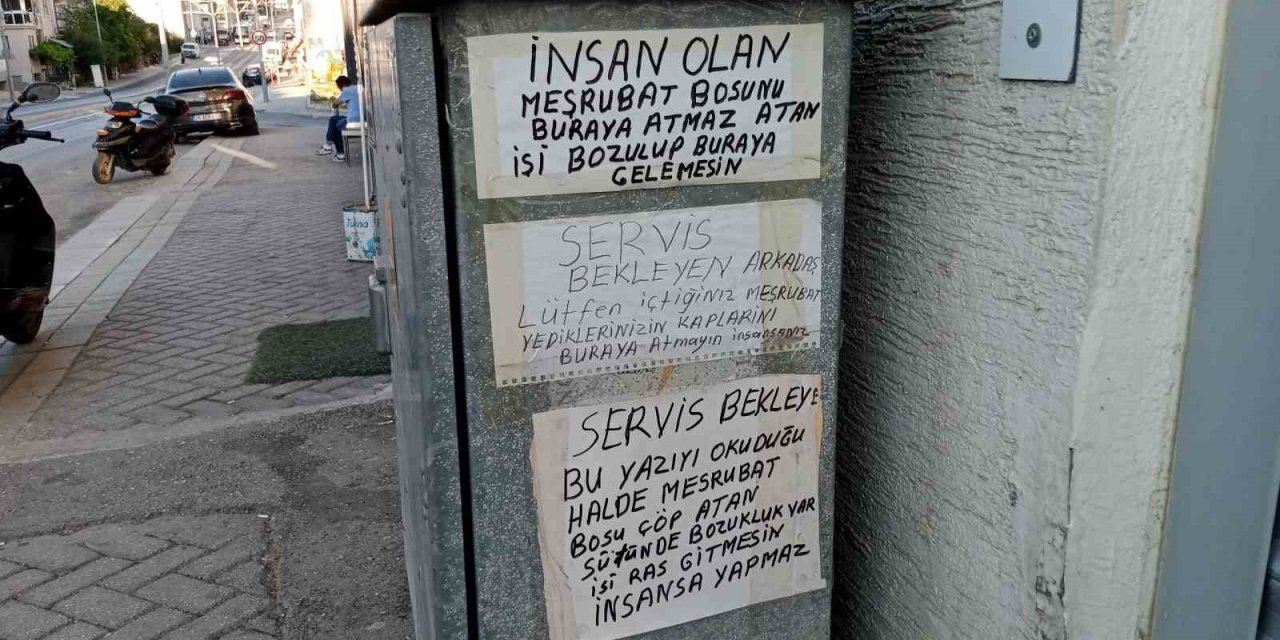 İNSAN OLAN
MEŞRUBAT BOSUNU
BURAYA ATMAZ ATAN
İŞİ BOZULUP BURAYA
GELEMESİN
SERVİS
BEKLEYEN ARKADAŞ
LÜTFEN içtiğiniz MEŞRUBAT
YEDİKLERİNİZİN KAPLARINI
BURAYA Atmayın insansanız
SERVİS BEKLEYE
BU YAZIYI OKUDUĞU
HALDE MESRUBAT
BOSU ÇÖP ATAN
SÜTÜNDE BOZUKLUK VAR
işi RAS GİTMESİN
İNSANSA YAPMAZ
50